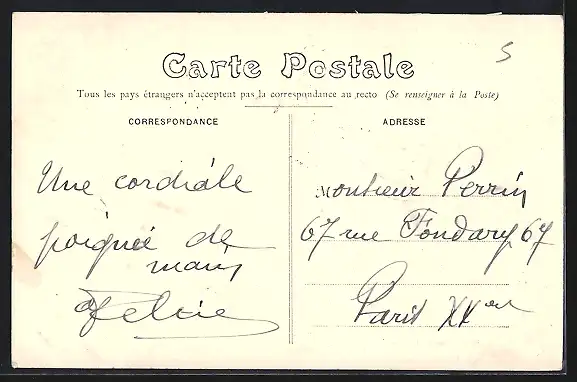 5
Carte Postale
Tous les pays étrangers n'acceptent pas la correspondance au recto (Se renseigner à la Poste)
CORRESPONDANCE
Une cordiale
poignée de
main
ADRESSE
Monsieur Perrin
67 rue Fondary 67
Paris XXème